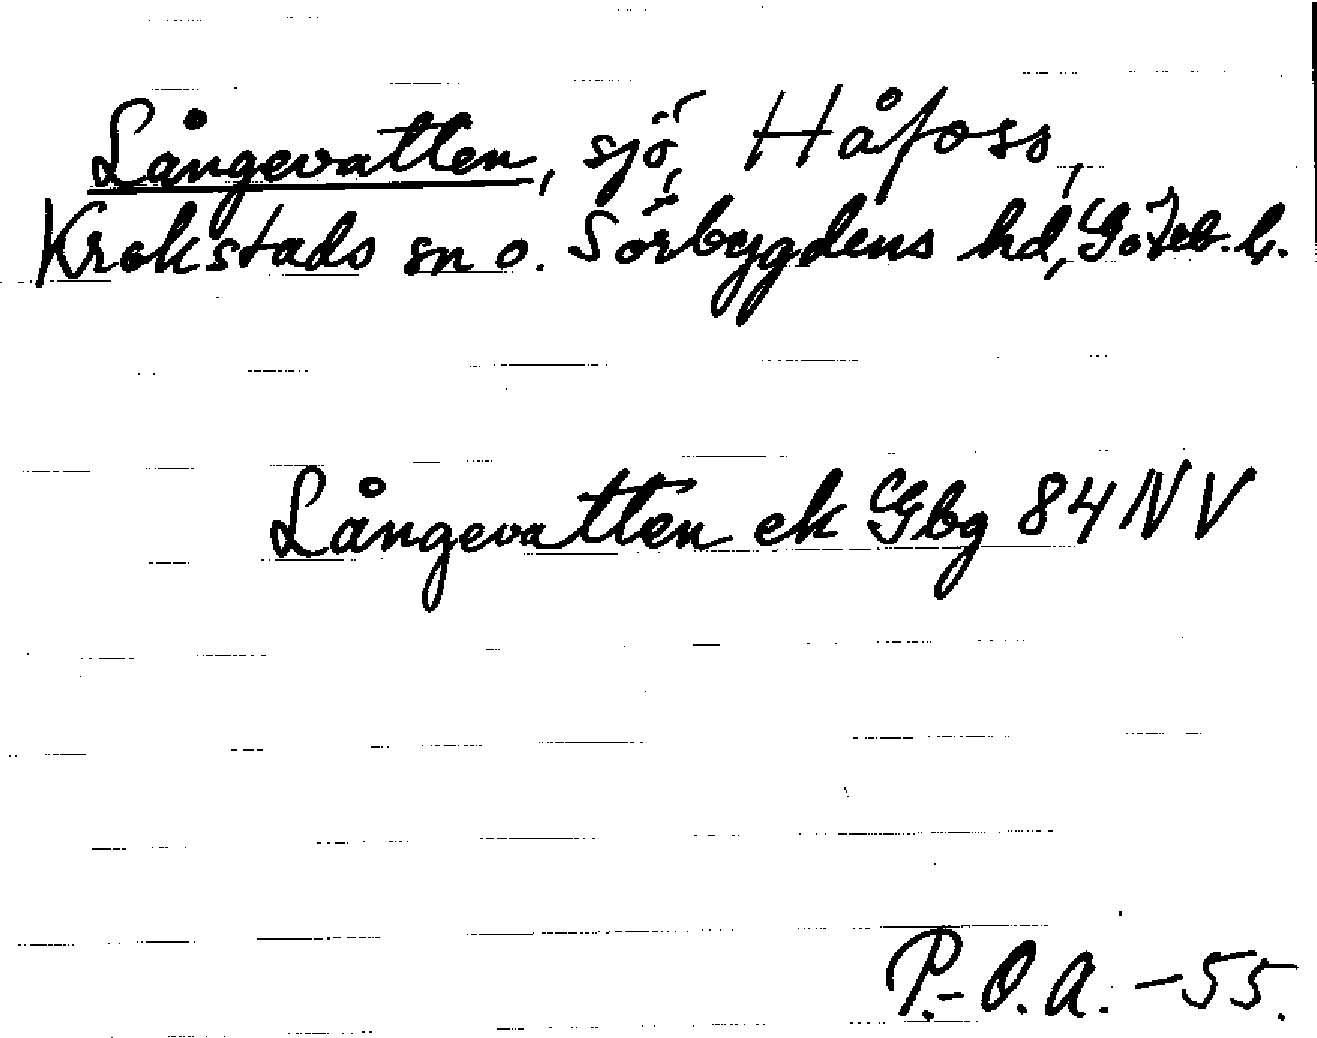 Långevatten, sjö, Håfoss,
Krokstads sn o. Sörbygdens hd, Göteb. l.
Långevatten ek Gbg 84 NV
P.-O.A. -55.